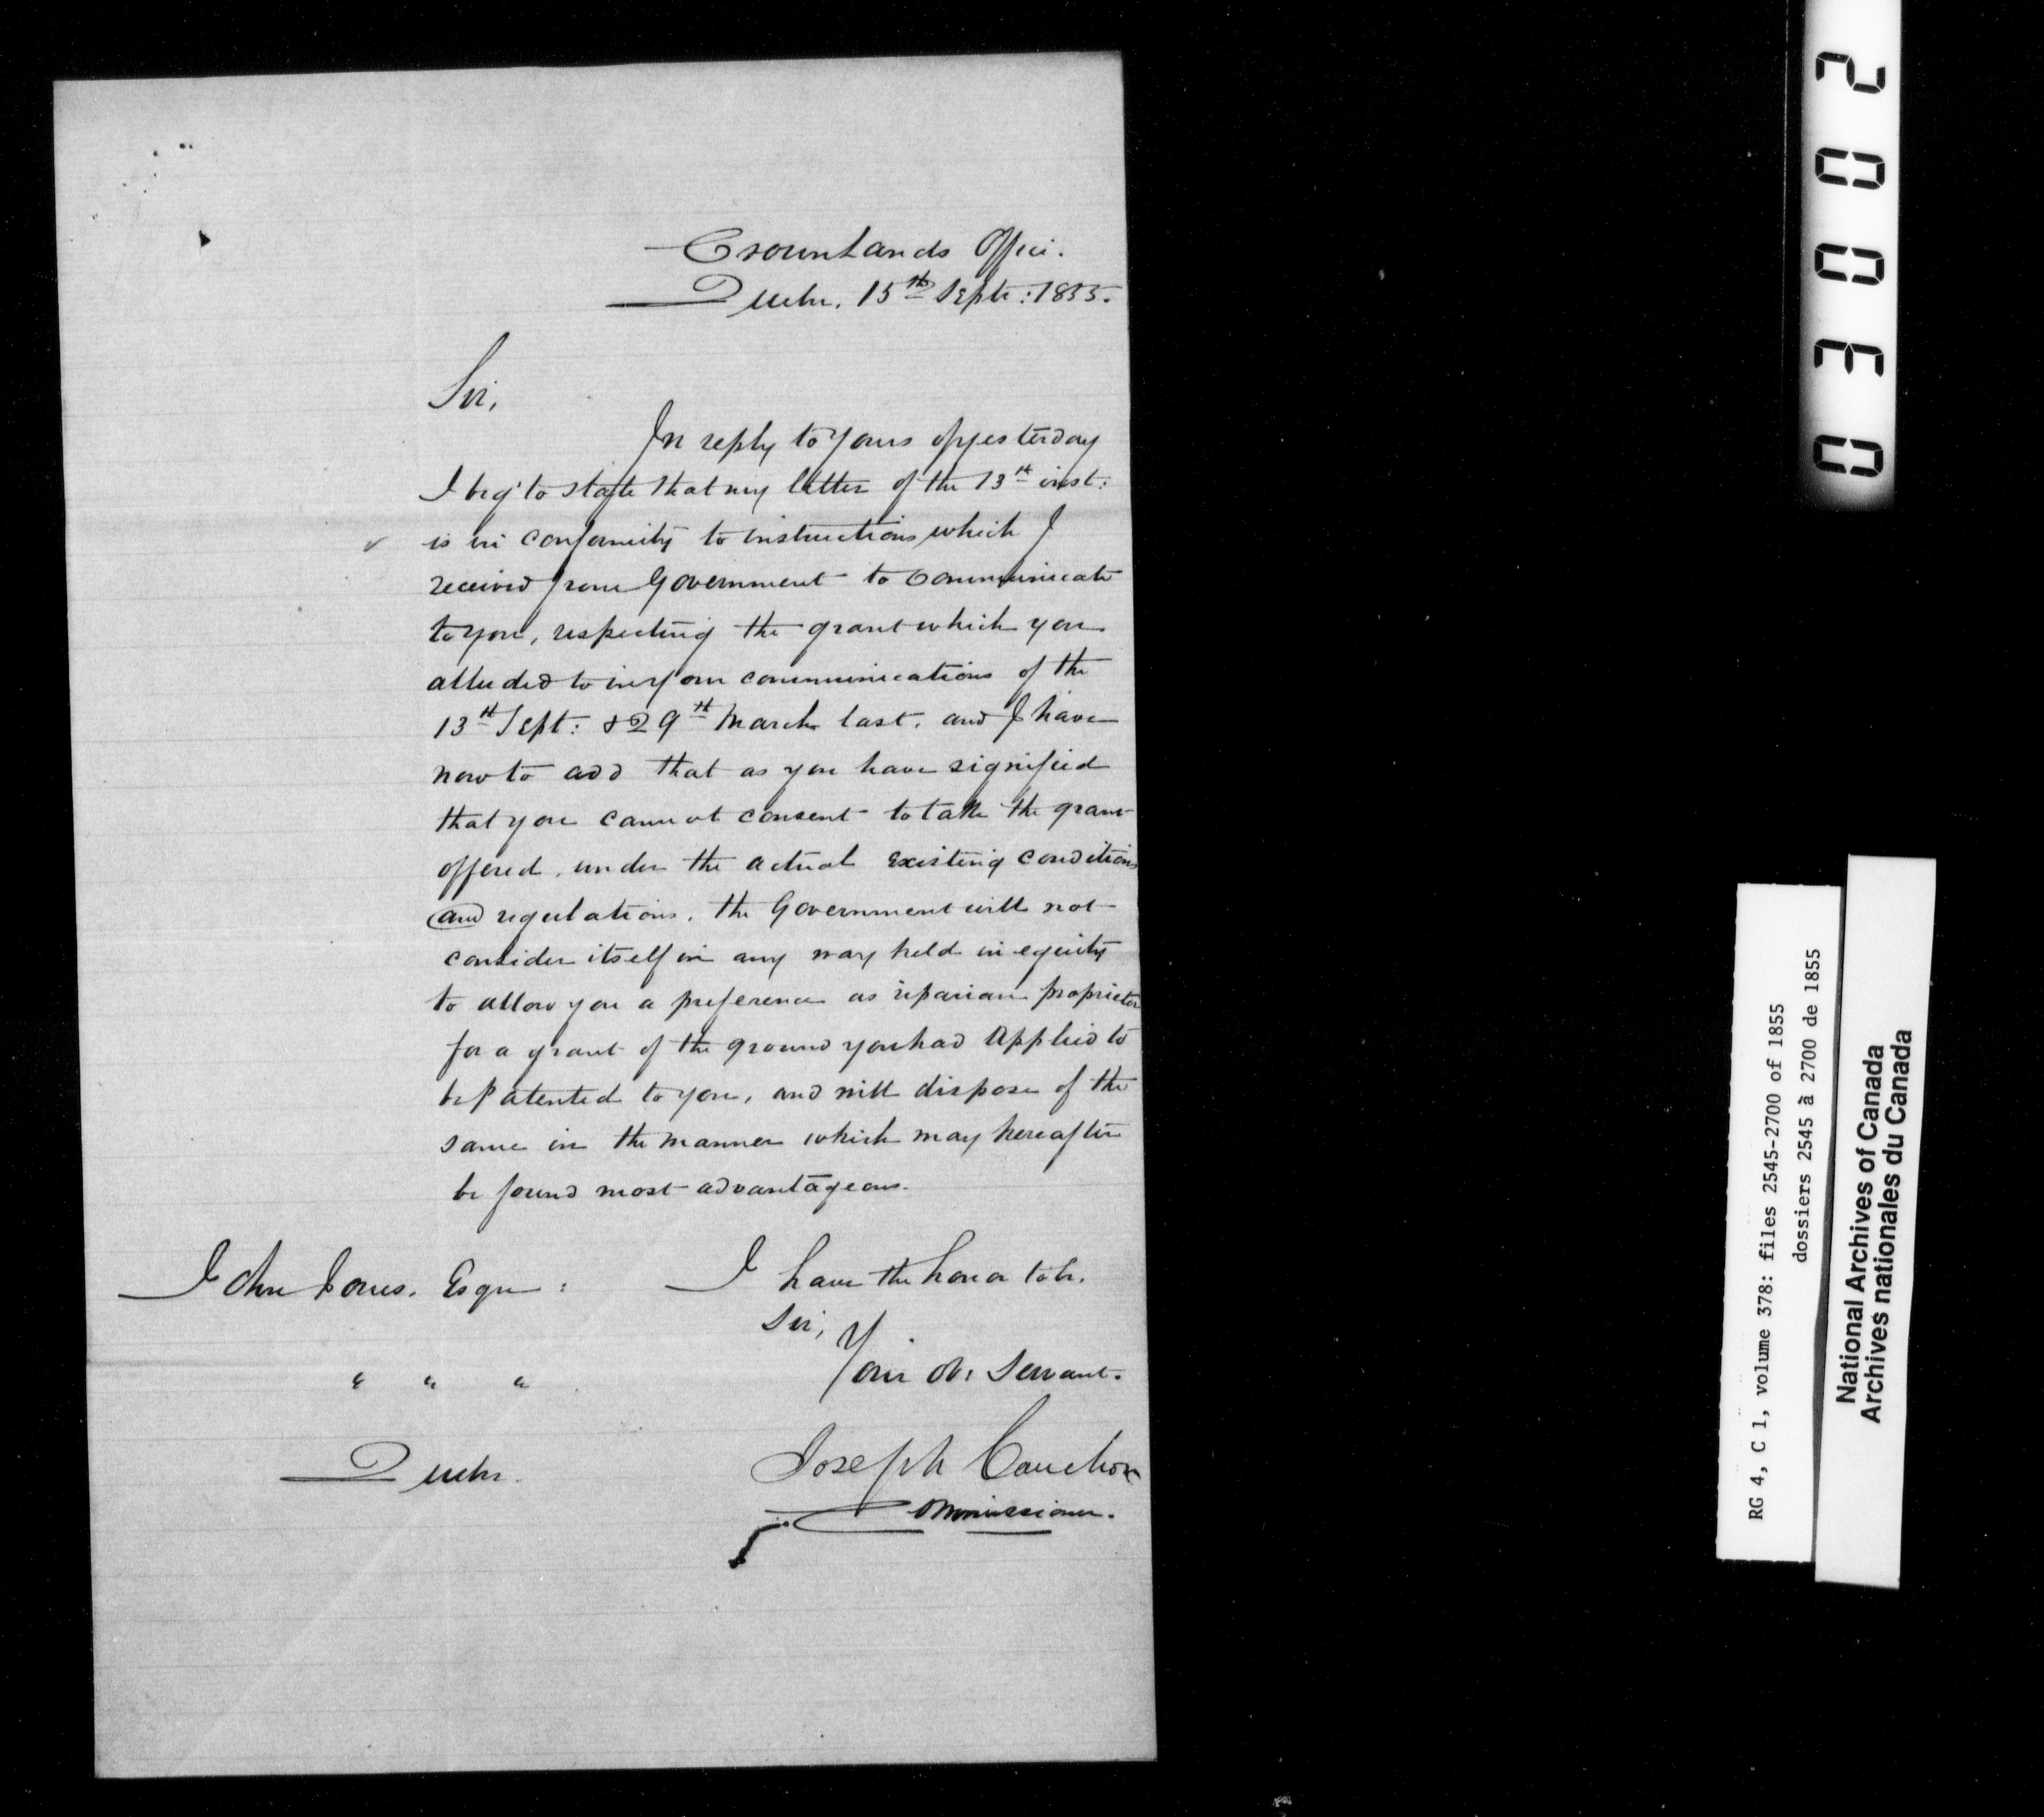 Crown Lands Office.
Quebec. 15th Septr: 1855.
Sir,
In reply to yours of yesterday
I beg to state that my letter of the 13th inst:
is in conformity to instructions which I
received from Government to communicate
to you, respecting the grant which you
alluded to in your communications of the
13th Sept: & 29th March last. and I have
now to add that as you have signified
that you cannot consent to take the grant
offered, under the actual existing conditions
and regulations. the Government will not
consider itself in any way held in equity
to allow you a preference as riparian proprietor
for a grant of the ground you had applied to
be Patented to you, and will dispose of the
same in the manner which may hereafter
be found most advantageous.
I have the honor to be.
Sir,
Your Ob: Servant.
Joseph Cauchon
Commissioner.
John Jones. Esqre:
" " "
Quebec.
03002
RG 4, C 1, volume 378: files 2545-2700 of 1855
dossiers 2545 à 2700 de 1855
National Archives of Canada
Archives nationales du Canada